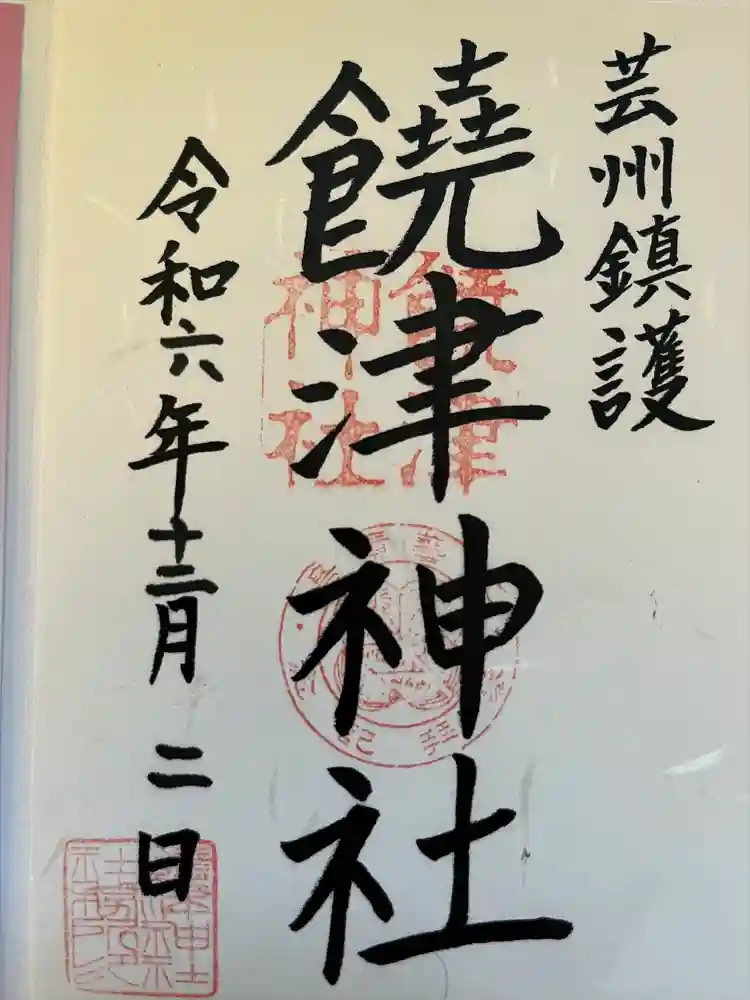 芸州鎮護
饒津神社
令和六年十二月二日
饒津
神社